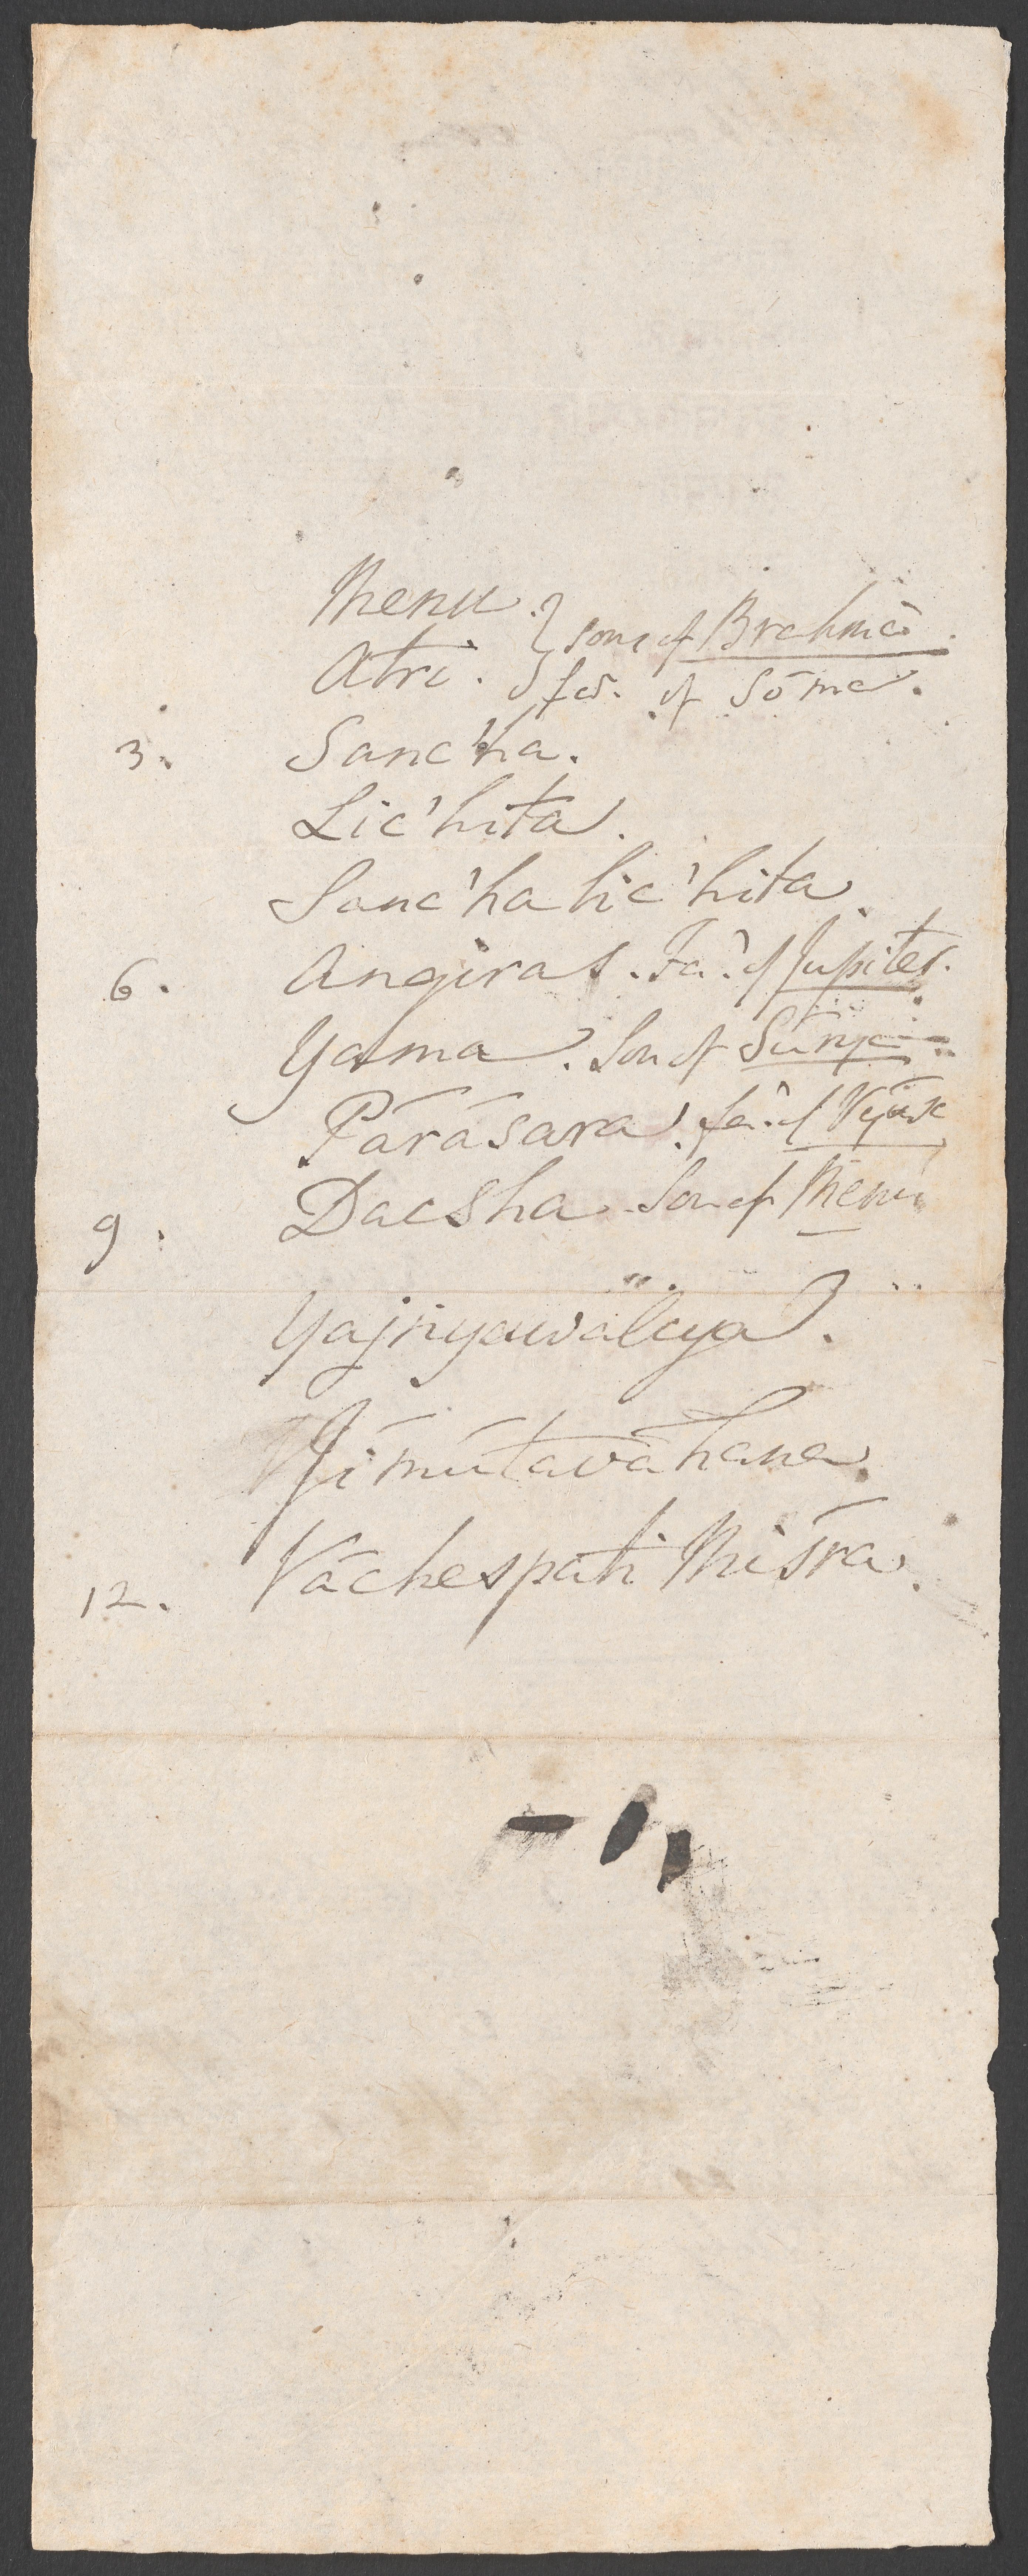 Menu. } sons of Brahmá.
Atri. } far. of Sóma.
3. Sanc'ha.
Lic'hita.
Sanc'ha lic'hita.
6. Angiras. Far. of Jupiter.
Yama. Son of Súrya.
Parásara. far. of Vyása
9. Dacsha. Son of Menu
Yajnyawalcya.
Jímútaváhana.
12. Váchespati Misra.